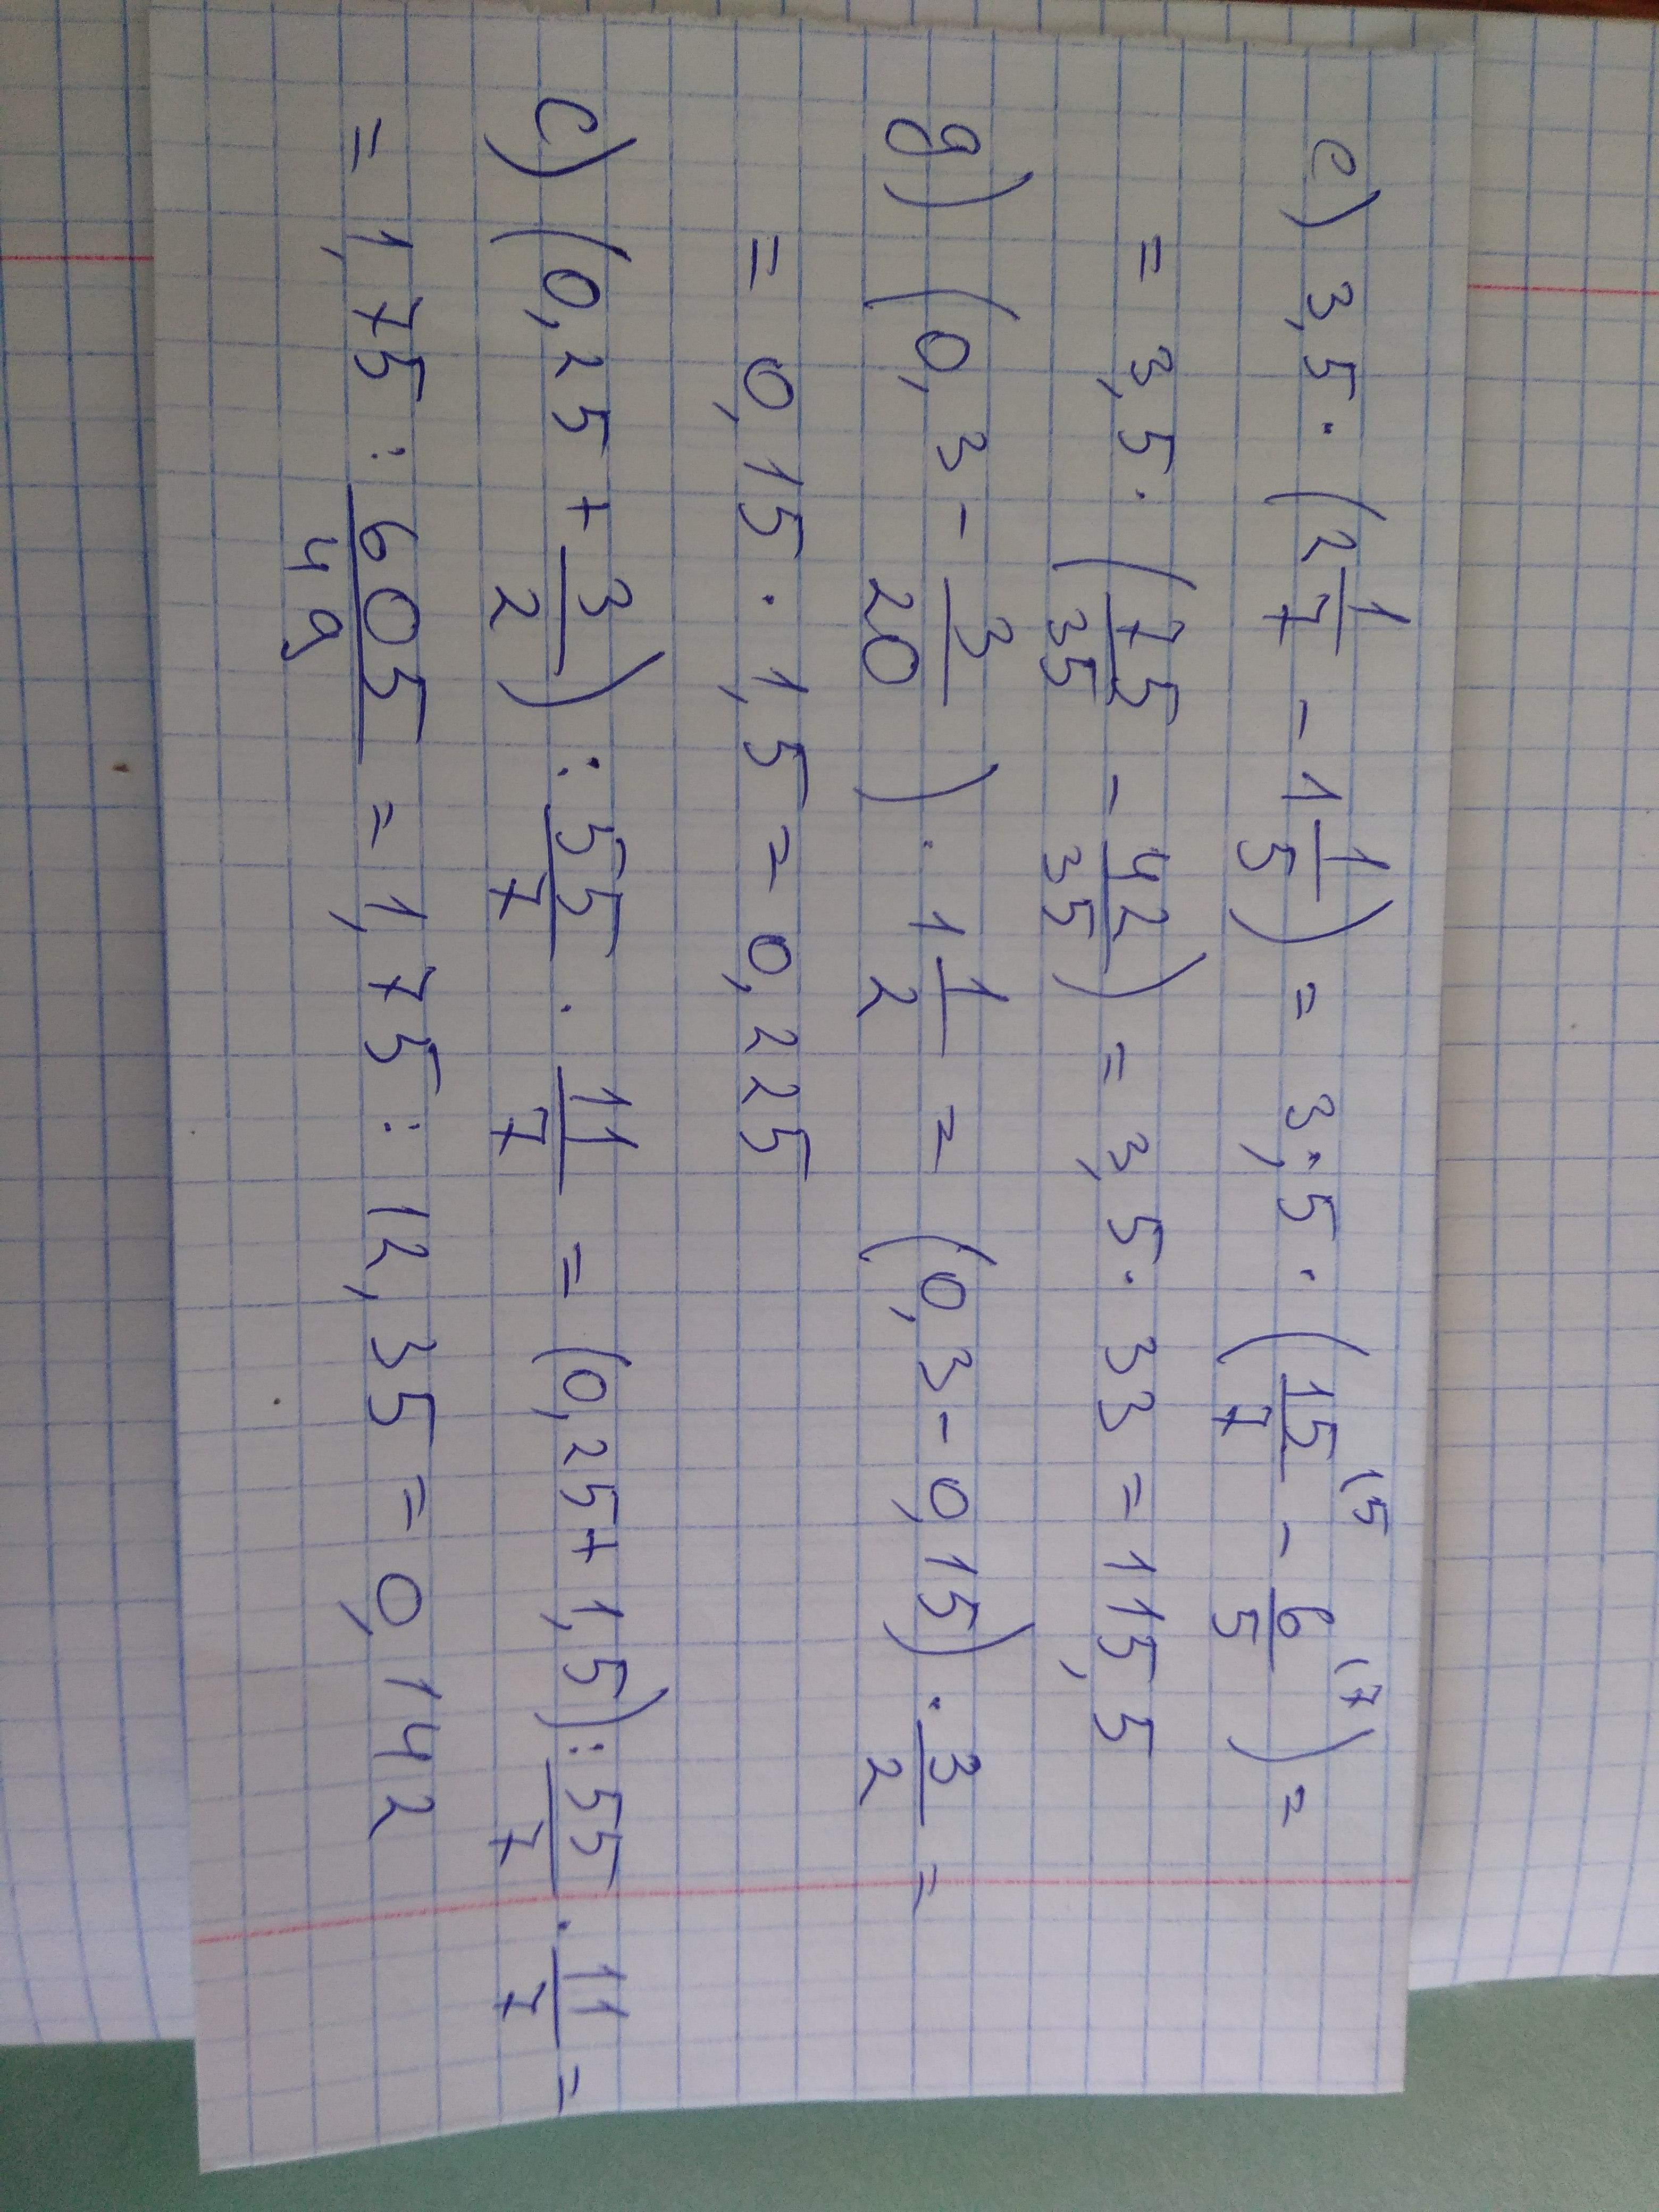 e) 3,5 · (2 1/7 - 1 1/5) = 3,5 · (15/7 (5 - 6/5 (7) =
= 3,5 · (75/35 - 42/35) = 3,5 · 33 = 115,5
g) (0,3 - 3/20) · 1 1/2 = (0,3 - 0,15) · 3/2 =
= 0,15 · 1,5 = 0,225
c) (0,25 + 3/2) : 55/7 · 11/7 = (0,25 + 1,5) : 55/7 · 11/7 =
= 1,75 : 605/49 = 1,75 : 12,35 = 0,142